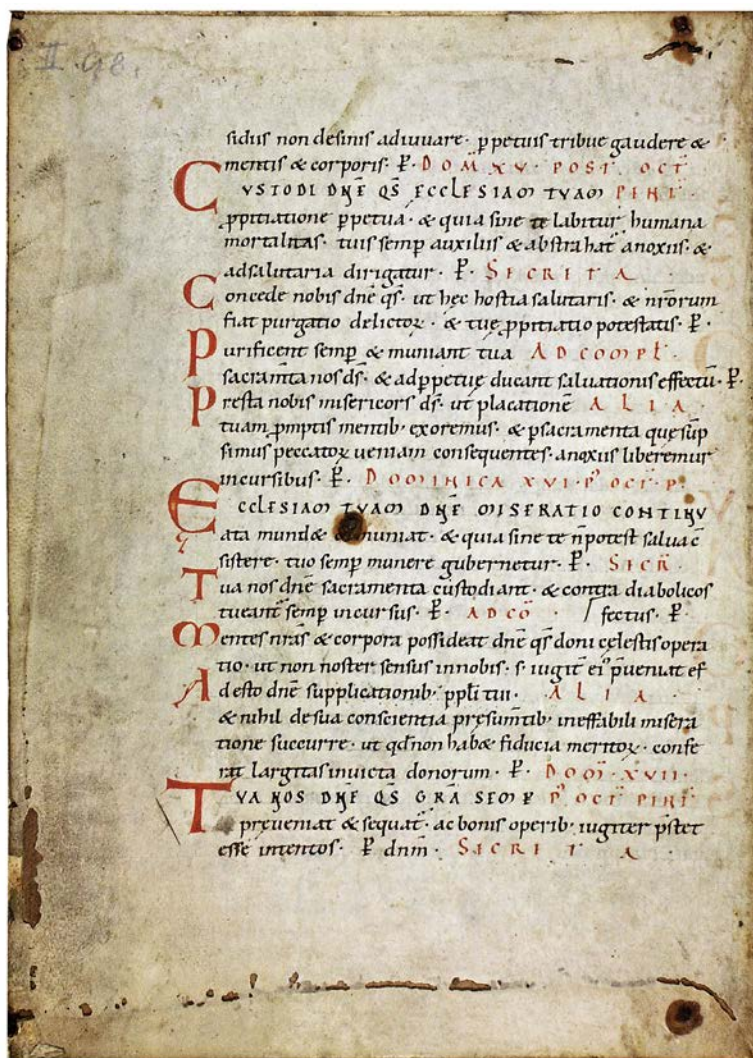 II. 98.
sidiis non desinis adiuuare· ꝑpetuis tribue gaudere &
mentis & corporis· ꝑ· DOM̄ XV· POST OCT̄
CVSTODI DN̄E QS̄ ECCLESIAM TVAM PENT·
ꝓpitiatione ꝑpetua· & quia sine te labitur humana
mortalitas· tuis semꝑ auxiliis & abstrahat̄ anoxiis· &
adsalutaria dirigatur· ꝑ· SECRETA
Concede nobis dn̄e qs̄· ut hec hostia salutaris· & nr̄orum
fiat purgatio delictoꝝ· & tuę ꝓpitiatio potestatis· ꝑ·
Purificent semꝑ & muniant tua AD COMPL̄·
sacram̄ta nos ds̄· & adꝑpetuę ducant saluationis effectū· ꝑ·
Presta nobis misericors ds̄· ut placationē ALIA·
tuam ꝓmptis mentib· exoremus· & ꝑsacramenta quę sūp
simus peccatoꝝ ueniam consequentes· anoxiis liberemur
incursibus· ꝑ· DOMINICA XVI· P̊ OCT· P·
ECCLESIAM TVAM DN̄E MISERATIO CONTINV
ata mund& & muniat· & quia sine te n̄potest salua cō
sistere· tuo semꝑ munere gubernetur· ꝑ· SECR̄·
Tua nos dn̄e sacramenta custodiant· & contra diabolicos
tueant̄ semꝑ incursus· ꝑ· AD CŌ· fectus· ꝑ·
Mentes nr̄as & corpora possideat dn̄e qs̄ doni cęlestis opera
tio· ut non noster sensus innobis· s· iugit̄ ei᷒ p̄ueniat ef
Adesto dn̄e supplicationib· ppl̄i tui· ALIA·
& nihil de sua conscientia pręsum̄tib· ineffabili misera
tione succurre· ut qđ non hab& fiducia meritoꝝ· confe
rat largitas inuicta donorum· ꝑ· DOM̄· XVII·
TVA NOS DN̄E QS̄ GRĀ SEMꝐ P̊ OCT̄ PENT̄
pręueniat & sequat̄· ac bonis operib· iugiter p̄stet
esse intentos· ꝑ dnm̄· SECRETA